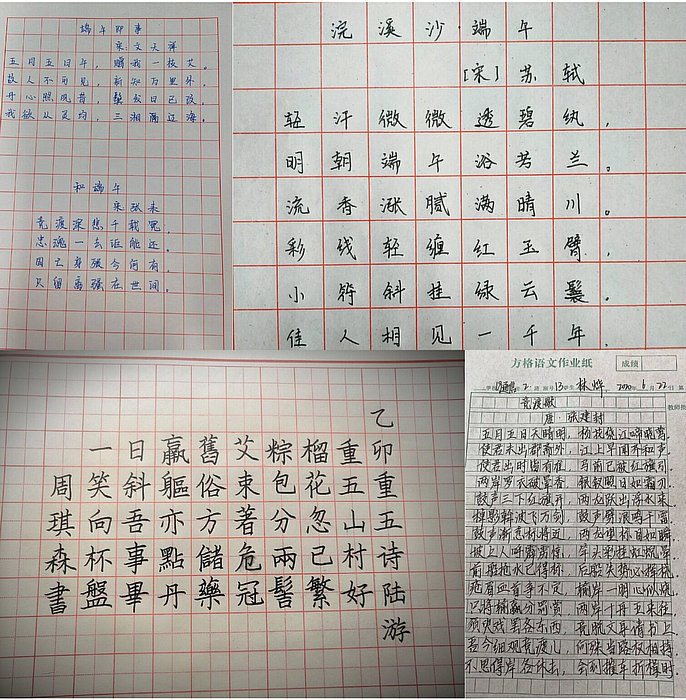 端午即事
宋:文天祥
五月五日午，赠我一枝艾。
故人不可见，新知万里外。
丹心照夙昔，鬓发日已改。
我欲从灵均，三湘隔辽海。
和端午
宋张耒
竞渡深悲千载冤，
忠魂一去能还。
国亡身殒今何有，
只留离骚在世间。
浣溪沙·端午
[宋]苏轼
轻汗微微透碧纨，
明朝端午浴芳兰。
流香涨腻满晴川。
彩线轻缠红玉臂，
小符斜挂绿云鬟。
佳人相见一千年。
乙卯重五诗陆游
重五山村好
榴花忽已繁
粽包分兩髻
艾束著危冠
舊俗方儲藥
羸軀亦點丹
日斜吾事畢
一笑向杯盤
周琪森書
方格语文作业纸
成绩
学生 林烨 2020 年 6 月 22 日
竞渡歌
唐·张建封
五月五日天晴明，杨花绕江啼晓莺。
使君未出郡斋外，江上早闻齐和声。
使君出时皆有准，马前已被红旗引。
两岸罗衣破晕香，银钗照日如霜刃。
鼓声三下红旗开，两龙跃出浮水来。
棹影斡波飞万剑，鼓声劈浪鸣千雷。
鼓声渐急标将近，两龙望标目如瞬。
坡上人呼霹雳惊，竿头彩挂虹霓晕。
前船抢水已得标，后船失势空挥桡。
疮眉血首争不定，输岸一朋心似烧。
只将输赢分罚赏，两岸十舟五来往。
须臾戏罢各东西，竞脱文身请书上。
吾今细观竞渡儿，何殊当路权相持。
不思得岸各休去，会到摧车折楫时